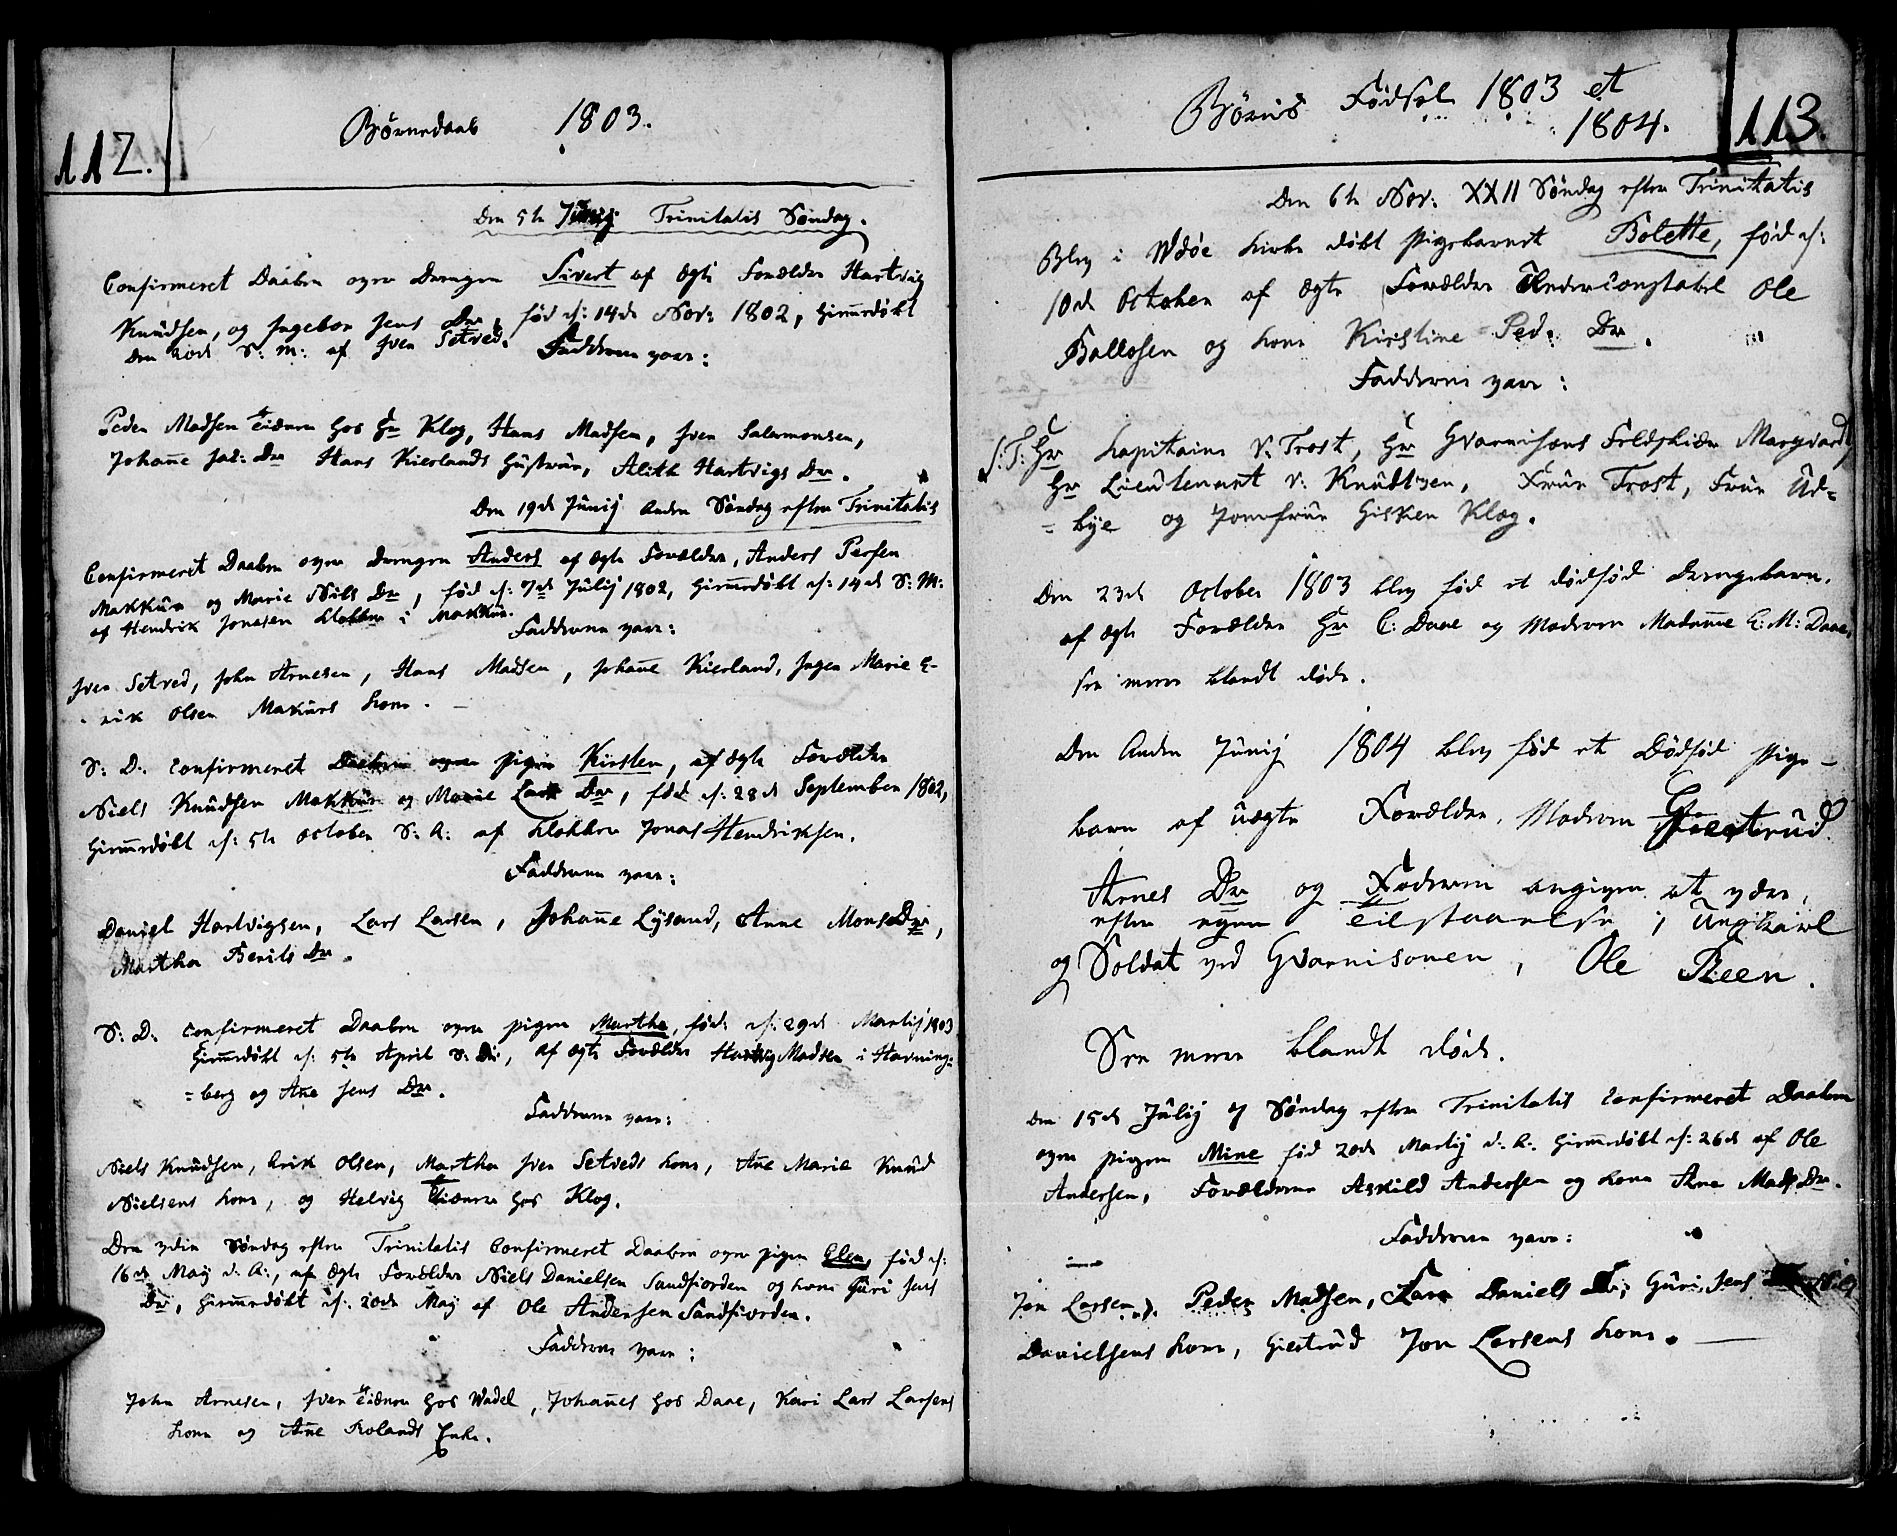 112.
Børnedaab 1803.
Den 5te Junij Trinitatis Søndag.
Confirmeret Daaben over Drengen Sivert af ægte Forældre Hartvig
Knudsen, og Ingebor Jens Dtr, fød d: 14de Nov: 1802, hjemmedøbt
den 20de S: M: af Iver Setved. Fadderne vare:
Peder Madsen tiener hos Hr Klog, Hans Madsen, Iver Salamonsen,
Johanne Jac: Dtr Hans Kierlands Hustrue, Alith Hartvigs Dtr.
Den 19de Junij Anden Søndag efter Trinitatis
Confirmeret Daaben over Drengen Anders af ægte Forældre, Anders Persen
Makkur og Marie Niels Dtr, fød d: 7de Julij 1802, hjemmedøbt d: 14de S: M:
af Hendrik Jonasen Klokker i Makkur. Fadderne vare:
Iver Setved, John Arnesen, Hans Madsen, Johanne Kierland, Inger Marie E-
-rik Olsen Makurs kone.
S: D: Confirmeret Daaben over pigen Kirsten, af ægte Forældre
Niels Knudsen Makkur og Marie Lars Dtr, fød d: 28de September 1802,
hjemmedøbt d: 5te October S: A: af Klokker Jonas Hendriksen.
Fadderne vare:
Daniel Hartvigsen, Lars Larsen, Johanne Lysund, Anne Mons Dtr,
Martha Berits Dtr.
S: D: Confirmeret Daaben over pigen Marthe, fød: d: 29de Martij 1803
hjemmedøbt d: 5te April S: A:, af ægte Forældre Hartvig Madsen i Havning-
=berg og Ane Jens Dtr.
Fadderne vare:
Niels Knudsen, Erik Olsen, Martha Iver Setveds kone, Ane Marie Knud
Nielsens kone, og Helvig tienere hos Klog.
Den 7din Søndag efter Trinitatis Confirmeret Daaben over pigen Elen, fød d:
16de Maij d: A:, af ægte Forældre Niels Danielsen Sandfiorden og kone Guri Jens
Dtr, hjemmedøbt d: 20de Maij af Ole Andersen Sandfiorden.
Fadderne vare:
John Arnesen, Iver tiener hos Wadel, Johannes hos Daae, Kari Lars Larsens
kone og Ane Rolands Enke.
Børns Fødsel 1803 et
1804.
113.
Den 6te Nov: XXII Søndag efter Trinitatis
Blev i Wdøe kirke døbt Pigebarnet Bolette, fød d:
10de October af ægte Forældre Underconstabel Ole
Ballosen og kone Kirstine Ped: Dtr.
Fadderne vare:
S: T: Hr Kapitaine v: Trost, Hr Gvarnisons Feldskiær Marqvardt
Hr Lieutenant v: Knudtzen, Frue Trost, Frue Ud=
=bye og Jomfrue Gisken Klog.
Den 23de October 1803 blev fød et dødfød drengebarn,
af ægte Forældre Hr C: Daae og Moderen Madamme E: M: Daae,
see mere blandt døde.
Den Anden Junij 1804 blev fød et Dødfød Pige-
barn af uægte Forældre, Moderen Giertrud
Arnes Dtr og Faderen angiven at være,
efter egen Tilstaaelse, Ungkarl
og Soldat ved Gvarnisonen, Ole Steen.
See mere blandt døde.
Den 15de Julij 7 Søndag efter Trinitatis Confirmeret Daaben
over pigen Mine fød 20de Martij d: A: hjemmedøbt d: 26de af Ole
Andersen, Forældrene Askild Andersen og kone Ane Mads Dtr.
Fadderne vare:
Jon Larsen, Peder Madsen, Daniels Dtr, Guri Jens Niels
Danielsens kone, Giertrud Jon Larsens kone.